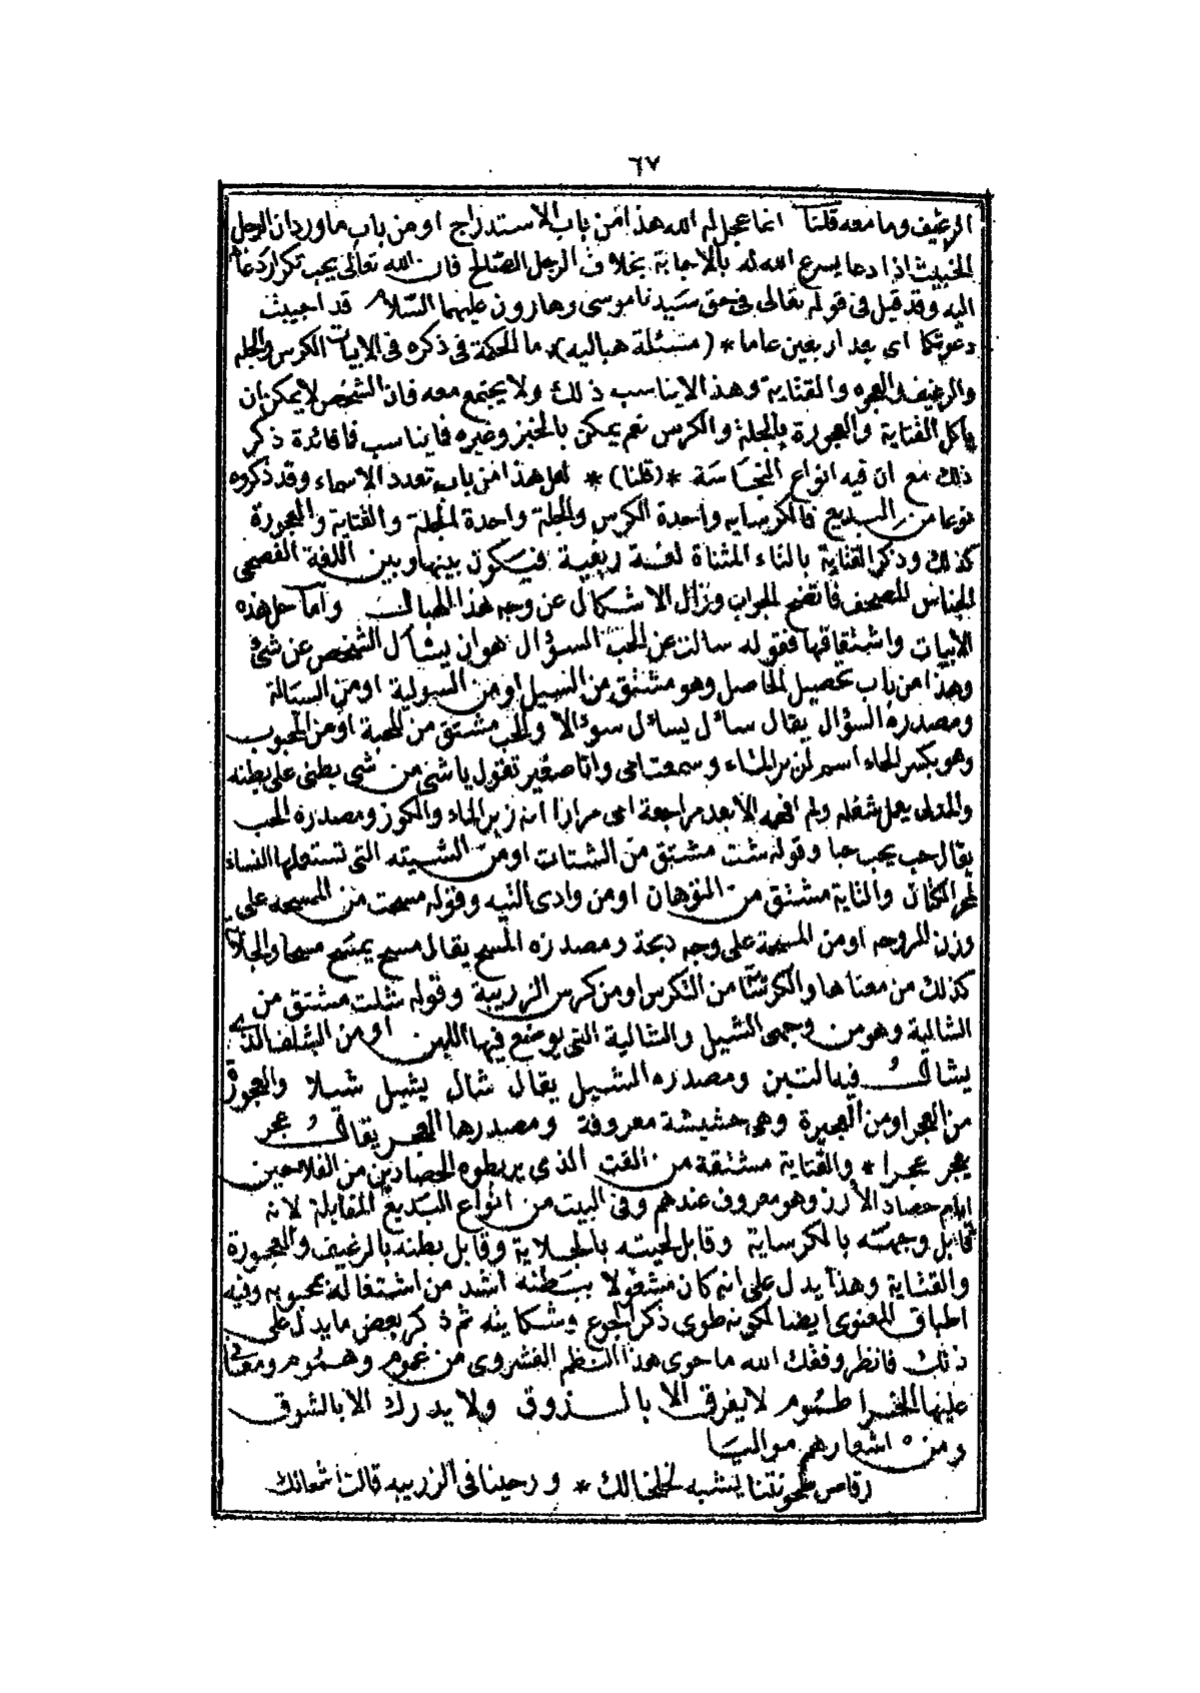 ٦٧
الرغيف وما معه قلنا انما عجل له الله هذا من باب الاستدراج او من باب ما ورد ان الرجل
الخبيث اذا دعا يسرع الله له بالاجابة بخلاف الرجل الصالح فان الله تعالى يحب تكرار دعائه
اليه وقد قيل فى قوله تعالى فى حق سيدنا موسى وهارون عليهما السلام قد اجيبت
دعوتكما اى بعد اربعين عاما * (مسئلة هباليه) ما الحكمة فى ذكره فى الابيات الكرس والجله
والرغيف والعجوره والقتاية وهذا لا يناسب ذلك ولا يجتمع معه فان الشخص لا يمكن ان
ياكل القتاية والعجورة بالجلة والكرس نعم يمكن بالخبز وغيره فما يناسب فما فائدة ذكر
ذلك مع ان فيه انواع النجاسة * (قلنا) * لعل هذا من باب تعدد الاسماء وقد ذكروه
نوعا من البديع فالكرسايه واحدة الكرس والجلة واحدة الجلة والقتاية والعجورة
كذلك وذكر القتاية بالتاء المثناة لغة ريفية فيكون بينها وبين اللغة الفصحى
الجناس المصحف فاتضح الجواب وزال الاشكال عن وجه هذا الهبال واما حل هذه
الابيات واشتقاقها فقوله سالت عن الحب السؤال هو ان يسأل الشخص عن شئ
وهذا من باب تحصيل الحاصل وهو مشتق من السيل او من السبولية او من السالة
ومصدره السؤال يقال سائل يسائل سوئالا والحب مشتق من المحبة او من المحبوب
وهو بكسر الحاء اسم لزير الماء وسمعت امى وانا صغير تقول يا شنى من شى بطنى على بطنه
والمدلى يعمل شغله ولم افهمه الا بعد مراجعة امى مرارا انه زير الماء والكوز ومصدره الحب
يقال حب يحب حبا وقوله شت مشتق من الشتات او من الشيته التى تستعملها النساء
لحر الكتان والتاية مشتق من التوهان او من وادى التيه وقوله مسحت من المسيحه على
وزن المروحه او من المسيحة على وجه دبحة ومصدره المسح يقال مسح يمسح مسحا والجلا
كذلك من معناها والكرستا من التكرس او من كرس الزريبة وقوله شلت مشتق من
الشالية وهو من وجهى الشيل والشالية التى يوضع فيها اللبن او من الشلف الذى
يشال فيه التبن ومصدره الشيل يقال شال يشيل شيلا والعجورة
من العجر او من العجيرة وهى حشيشة معروفة ومصدرها العجر يقال عجر
يعجر عجرا * والقتاية مشتقة من القت الذى يربطوه الحصادين من الفلاحين
ايام حصاد الأرز وهو معروف عندهم وفى البيت من انواع البديع المقابلة لانه
قابل وجهته بالكرساية وقابل لحيته بالجلاية وقابل بطنه بالرغيف والعجورة
والقتاية وهذا يدل على انه كان مشغولا ببطنه اشد من اشتغاله بمحبوبه وفيه
اطباق المعنوى ايضا لكونه طوى ذكر الجوع وشكايته ثم ذكر بعض ما يدل على
ذلك فانظر وفقك الله ما حوى هذا النظم الفشروى من غموم وهموم ومعانى
عليها الخرا طموم لا يفرق الا بالذوق ولا يدرك الا بالشوق
ومن اشعارهم مواليا
رقاص طحونتنا يشبه لخلخالك * ورحينا فى الزريبه قالت اشمالك